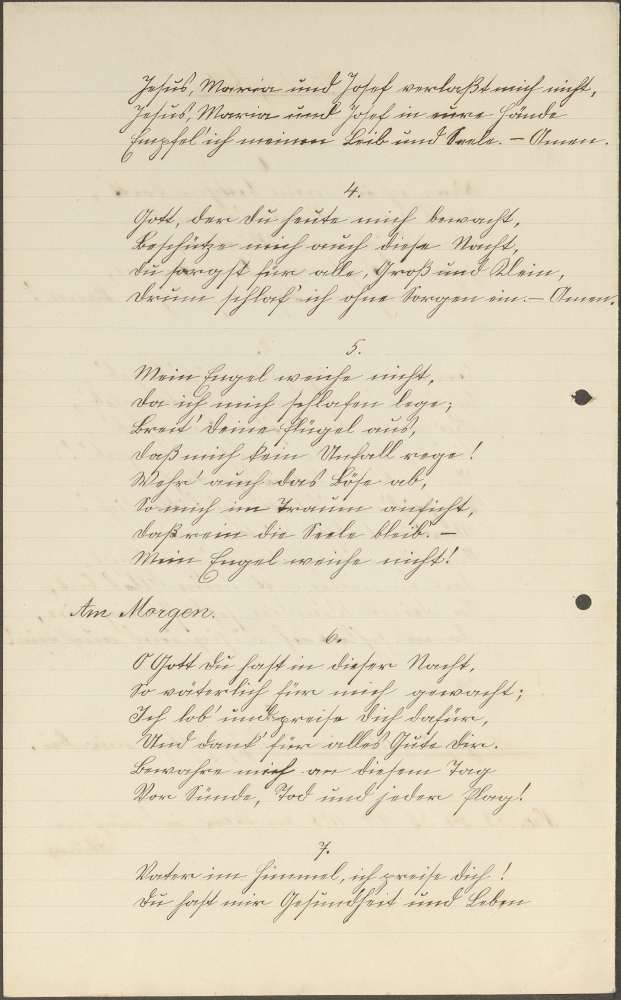 Jesus, Maria und Josef verlaßt mich nicht,
Jesus, Maria und Josef in eure Hände
Empfel' ich meinen Leib und Seele. – Amen.
4.
Gott, der Du heute mich bewacht,
Beschütze mich auch diese Nacht,
Du sorgst für alle, Groß und Klein,
Drum schlaf' ich ohne Sorgen ein. – Amen.
5.
Mein Engel weiche nicht,
Da ich mich schlafen lege;
Breit' Deine Flügel aus,
Daß mich kein Unfall rege!
Wehr' auch das Böse ab,
So mich im Traum anficht,
Daß rein die Seele bleib'. –
Mein Engel weiche nicht!
Am Morgen.
6.
O Gott Du hast in dieser Nacht,
So väterlich für mich gewacht;
Ich lob' und preise Dich dafür,
Und dank' für alles Gute Dir.
Bewahre mich an diesem Tag
Vor Sünde, Tod und jeder Plag!
7.
Vater im Himmel, ich preise dich!
Du hast mir Gesundheit und Leben